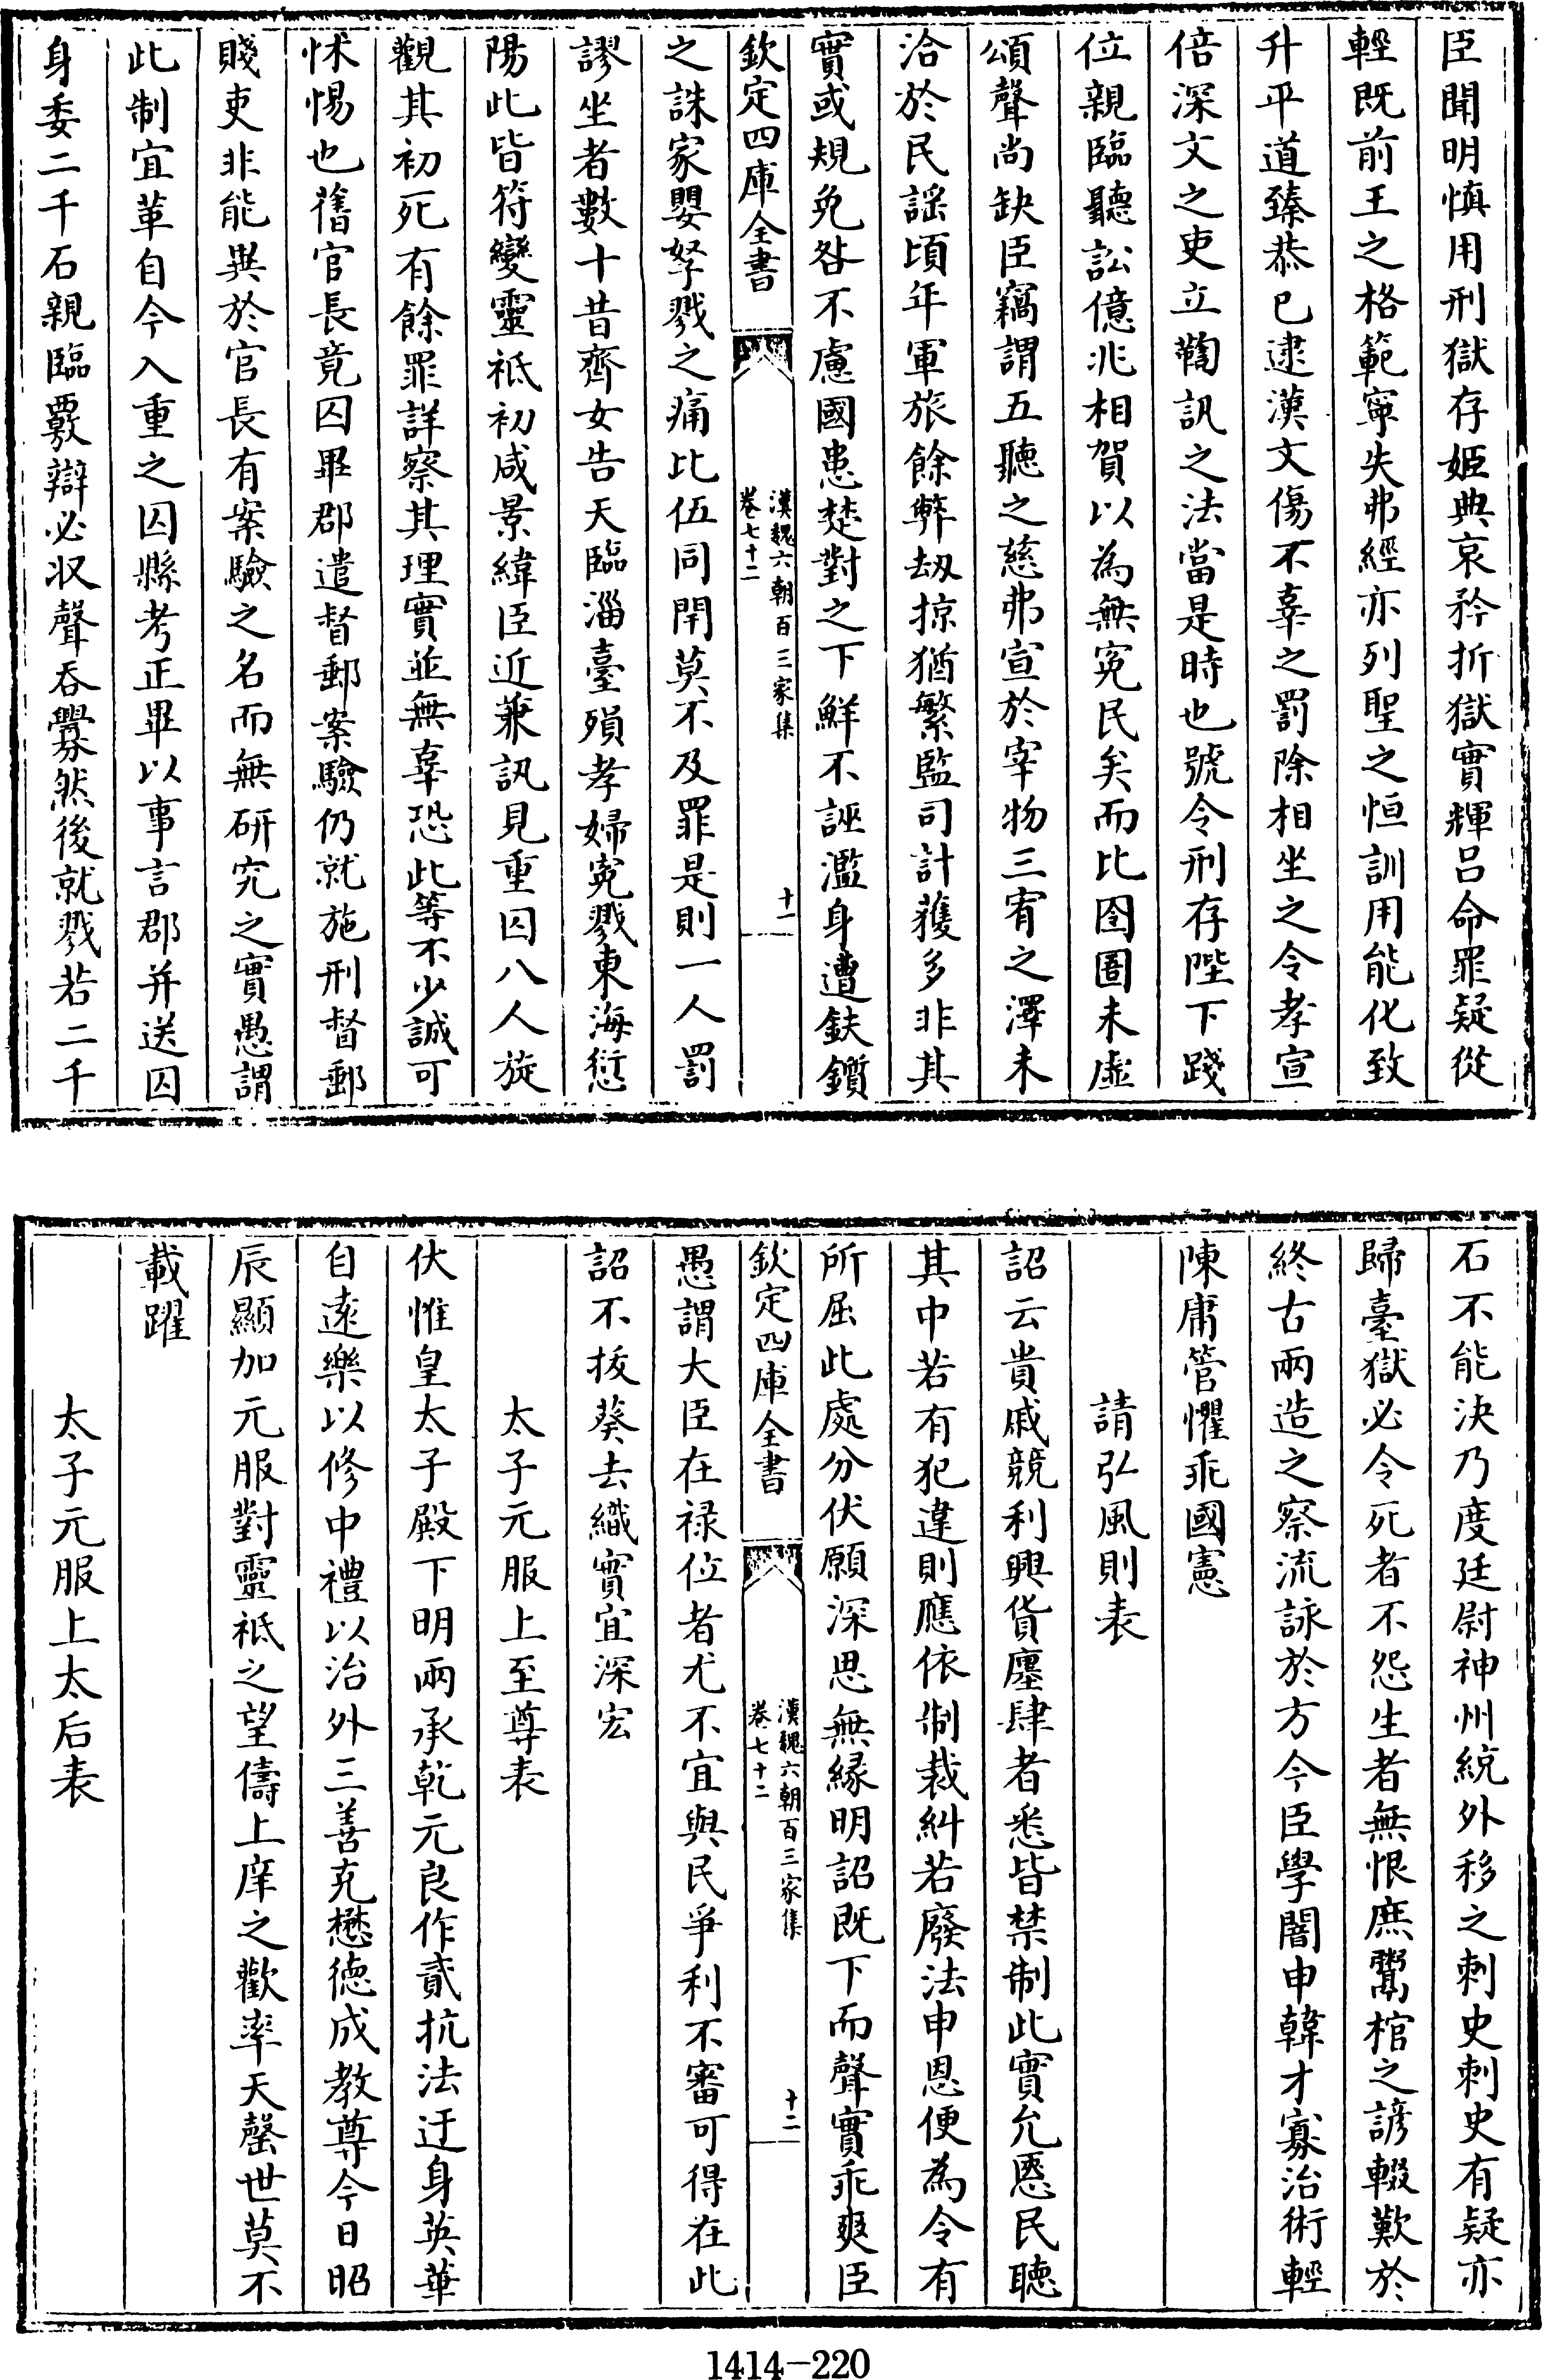 臣聞明慎用刑獄存姬典哀矜折獄實輝呂命罪疑從
輕既前王之格範寧失弗經亦列聖之恒訓用能化致
升平道臻恭已逮漢文傷不辜之罰除相坐之令孝宣
倍深文之吏立鞫訊之法當是時也號令刑存陛下踐
位親臨聽訟億兆相賀以為無寃民矣而比囹圄未虛
頌聲尚缺臣竊謂五聽之慈弗宣於宰物三宥之澤未
洽於民謡頃年軍旅餘弊劫掠猶繁監司計獲多非其
實或規免咎不慮國患楚對之下鮮不誣濫身遭鈇鑕
欽定四庫全書
漢魏六朝百三家集
卷七十二
十一
之誅家嬰孥戮之痛比伍同閈莫不及罪是則一人罰
謬坐者數十昔齊女告天臨淄臺殞孝婦寃戮東海愆
陽此皆符變靈祗初咸景緯臣近兼訊見重囚八人旋
觀其初死有餘罪詳察其理實並無辜恐此等不少誠可
怵惕也舊官長竟囚畢郡遣督郵案驗仍就施刑督郵
賤吏非能異於官長有案驗之名而無研究之實愚謂
此制宜革自今入重之囚縣考正畢以事言郡并送囚
身委二千石親臨覈辯必收聲吞釁然後就戮若二千
石不能決乃度廷尉神州統外移之刺史刺史有疑亦
歸臺獄必令死者不怨生者無恨庶鬻棺之諺輟歎於
終古兩造之察流詠於方今臣學闇申韓才寡治術輕
陳庸管懼乖國憲
請弘風則表
詔云貴戚競利興貨廛肆者悉皆禁制此實允愜民聽
其中若有犯違則應依制裁糾若廢法申恩便為令有
所屈此處分伏願深思無緣明詔既下而聲實乖爽臣
欽定四庫全書
漢魏六朝百三家集
卷七十二
十二
愚謂大臣在禄位者尤不宜與民爭利不審可得在此
詔不拔葵去織實宜深宏
太子元服上至尊表
伏惟皇太子殿下明兩承乾元良作貳抗法迂身英華
自遠樂以修中禮以治外三善克懋德成教尊今日昭
辰顯加元服對靈祗之望儔上庠之歡率天罄世莫不
載躍
太子元服上太后表
1414-220